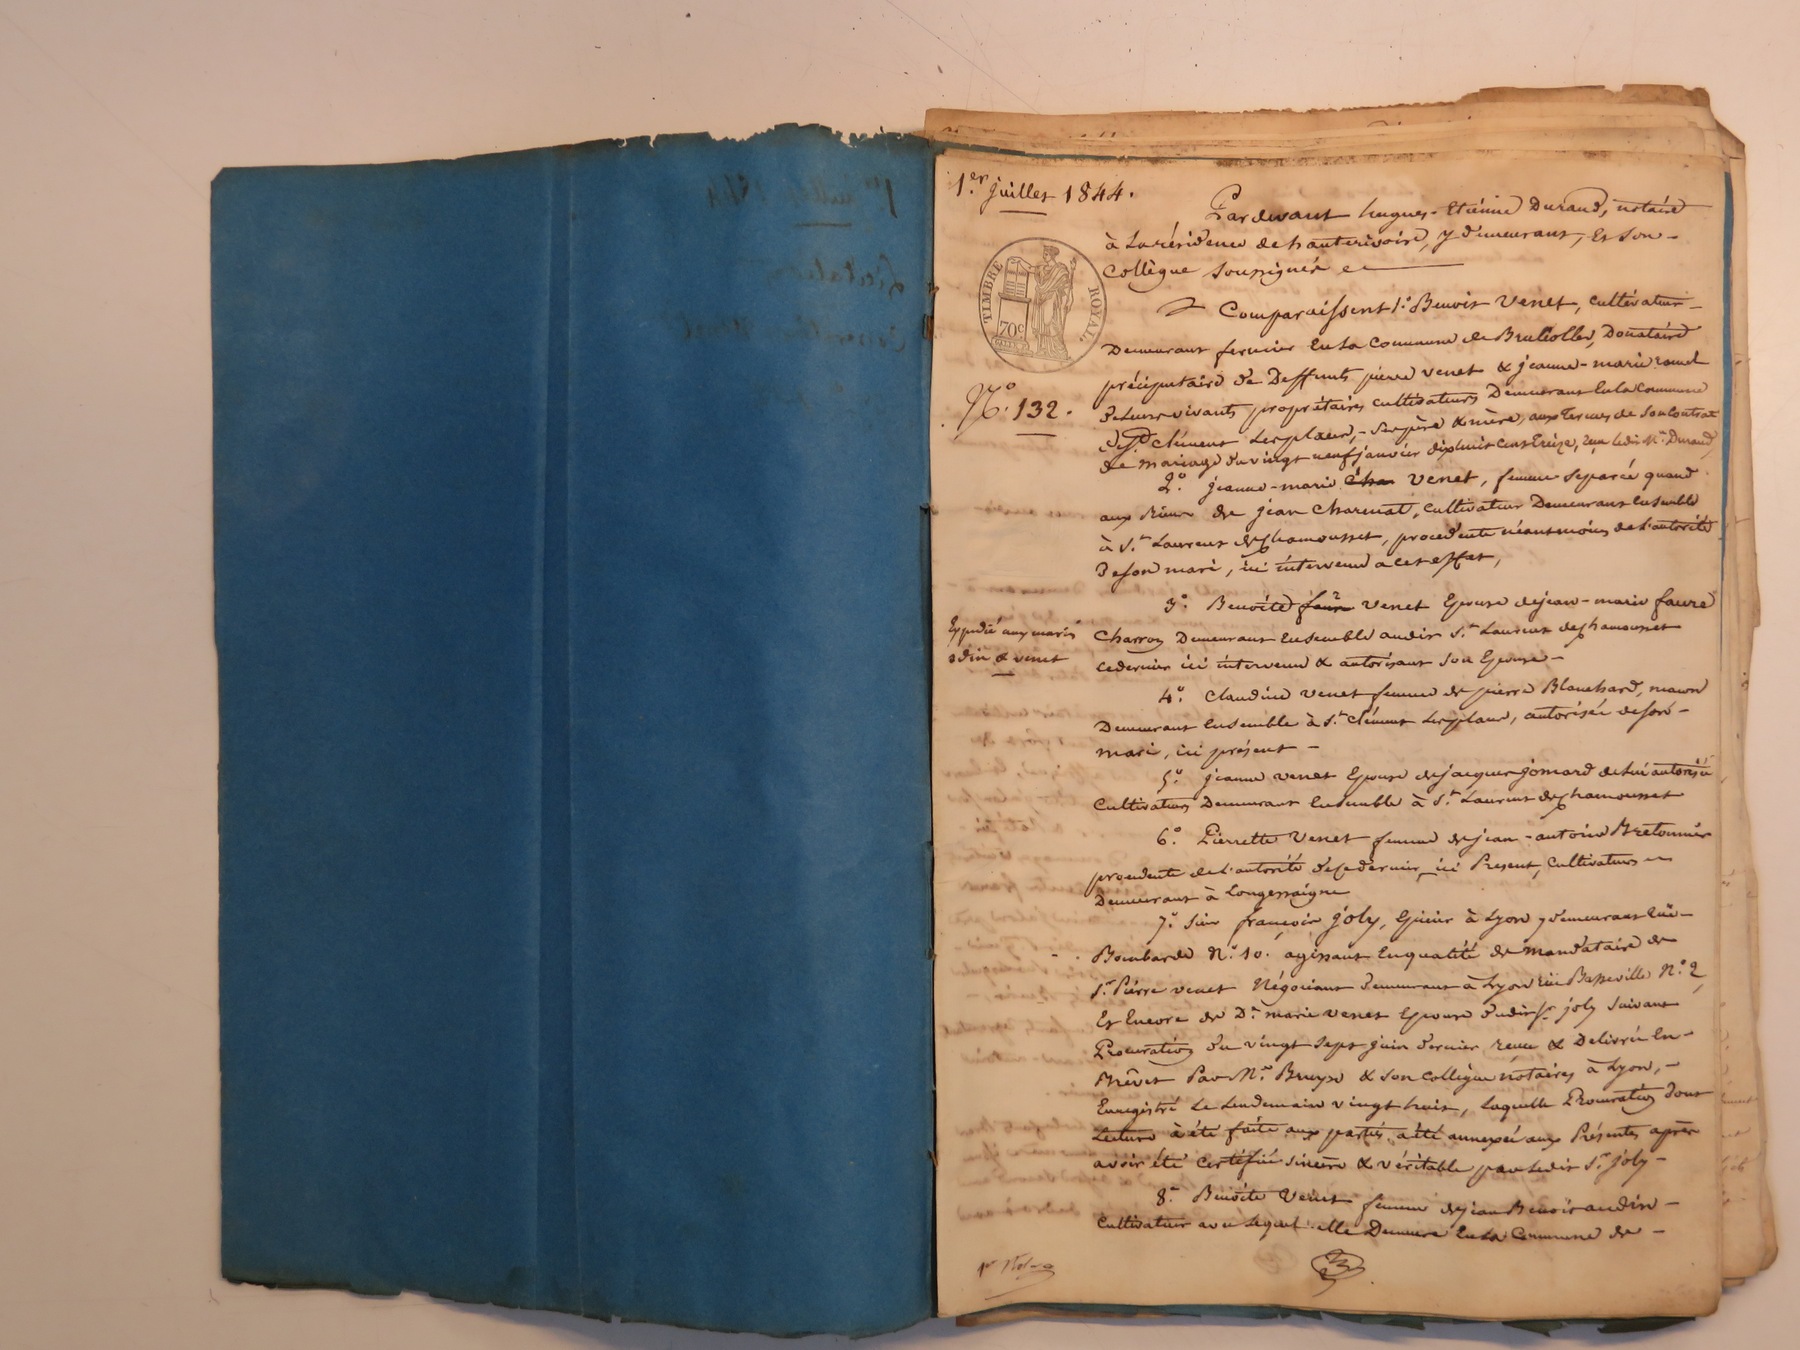 1er juillet 1844.
Pardevant hugues-Etienne Durand, notaire
à la résidence de hauterivoire, y demeurant, Et son
Collègue soussignés
TIMBRE ROYAL.
70c
Comparaissent 1° Benoit Venet, Cultivateur
Demeurant fermier En la Commune de Brullolles, Donataire
préciputaire de Deffunts pierre venet & jeanne-marie
N° 132.
De leurs vivants propriétaires cultivateurs Demeurant En la Commune
de St Clément Lesplaces, Ses père & mère, aux termes de Son Contrat
de mariage du vingt neuf janvier dix huit cent treize, reçu ledit Me Durand
2° jeanne-marie venet, femme séparée quand
aux Biens de jean Charenat, Cultivateur Demeurant Ensemble
à St Laurent de Chamousset, procédente néantmoins de l'autorité
De son mari, ici intervenu a cet effet,
3° Benoite venet Epouse de jean-marie faure
Expedié aux mariés
odin & venet
Charron Demeurant Ensemble audit St Laurent de Chamousset
ce dernier ici intervenu & autorisant son Epouse
4° Claudine venet femme de pierre Blanchard, maçon
Demeurant Ensemble à St Clément Lesplaces, autorisée de son
mari, ici présent
5° jeanne venet Epouse de jacques jomard de lui autorisée
Cultivateurs Demeurant Ensemble à St Laurent de Chamousset
6° Pierrette Venet femme de jean-antoine Bretonnier
procedente de l'autorité de ce dernier, ici Present, Cultivateurs
Demeurant à Longessaigne
7° Sieur françois joly, Epicier à Lyon y demeurant rüe
Bombarde N° 10. agissant En qualité de mandataire de
Sr Pierre venet Négociant demeurant à Lyon rüe Basseville N° 2,
Et Encore de De marie venet Epouse dudit Sr joly Suivant
Procuration du vingt sept juin dernier reçue & Delivrée En
Brêvet Par Me Bruyn & son Collègue notaires à Lyon,
Enregistré Le Lendemain vingt huit, laquelle Procuration dont
Lecture à été faite aux parties, a été annexée aux Présentes après
avoir été certifiée sincère & véritable par ledit Sr joly
8° Benoite Venet femme de jean Benoit audin
Cultivateur avec lequel elle Demeure En la Commune de